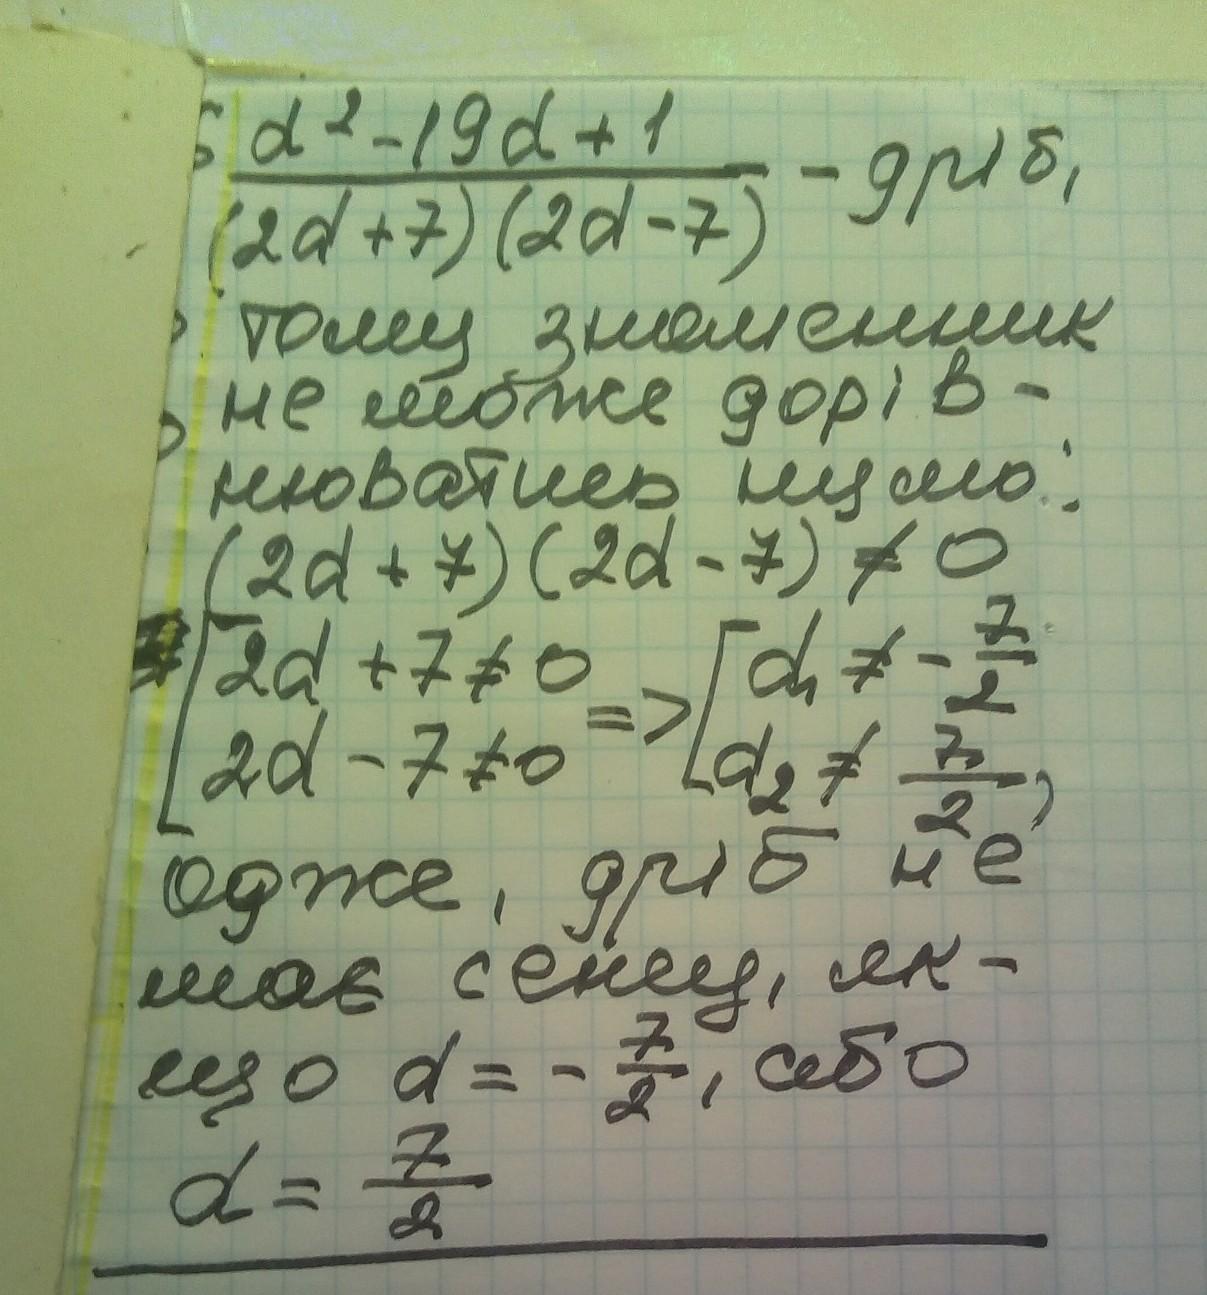 d² - 19d + 1
(2d + 7)(2d - 7) - дріб,
тому знаменник
не може дорів-
нюватись нулю:
(2d + 7)(2d - 7) ≠ 0
[2d + 7 ≠ 0 => [d₁ ≠ - 7/2
2d - 7 ≠ 0 d₂ ≠ 7/2,
одже, дріб не
має сенсу, як-
що d = - 7/2, або
d = 7/2